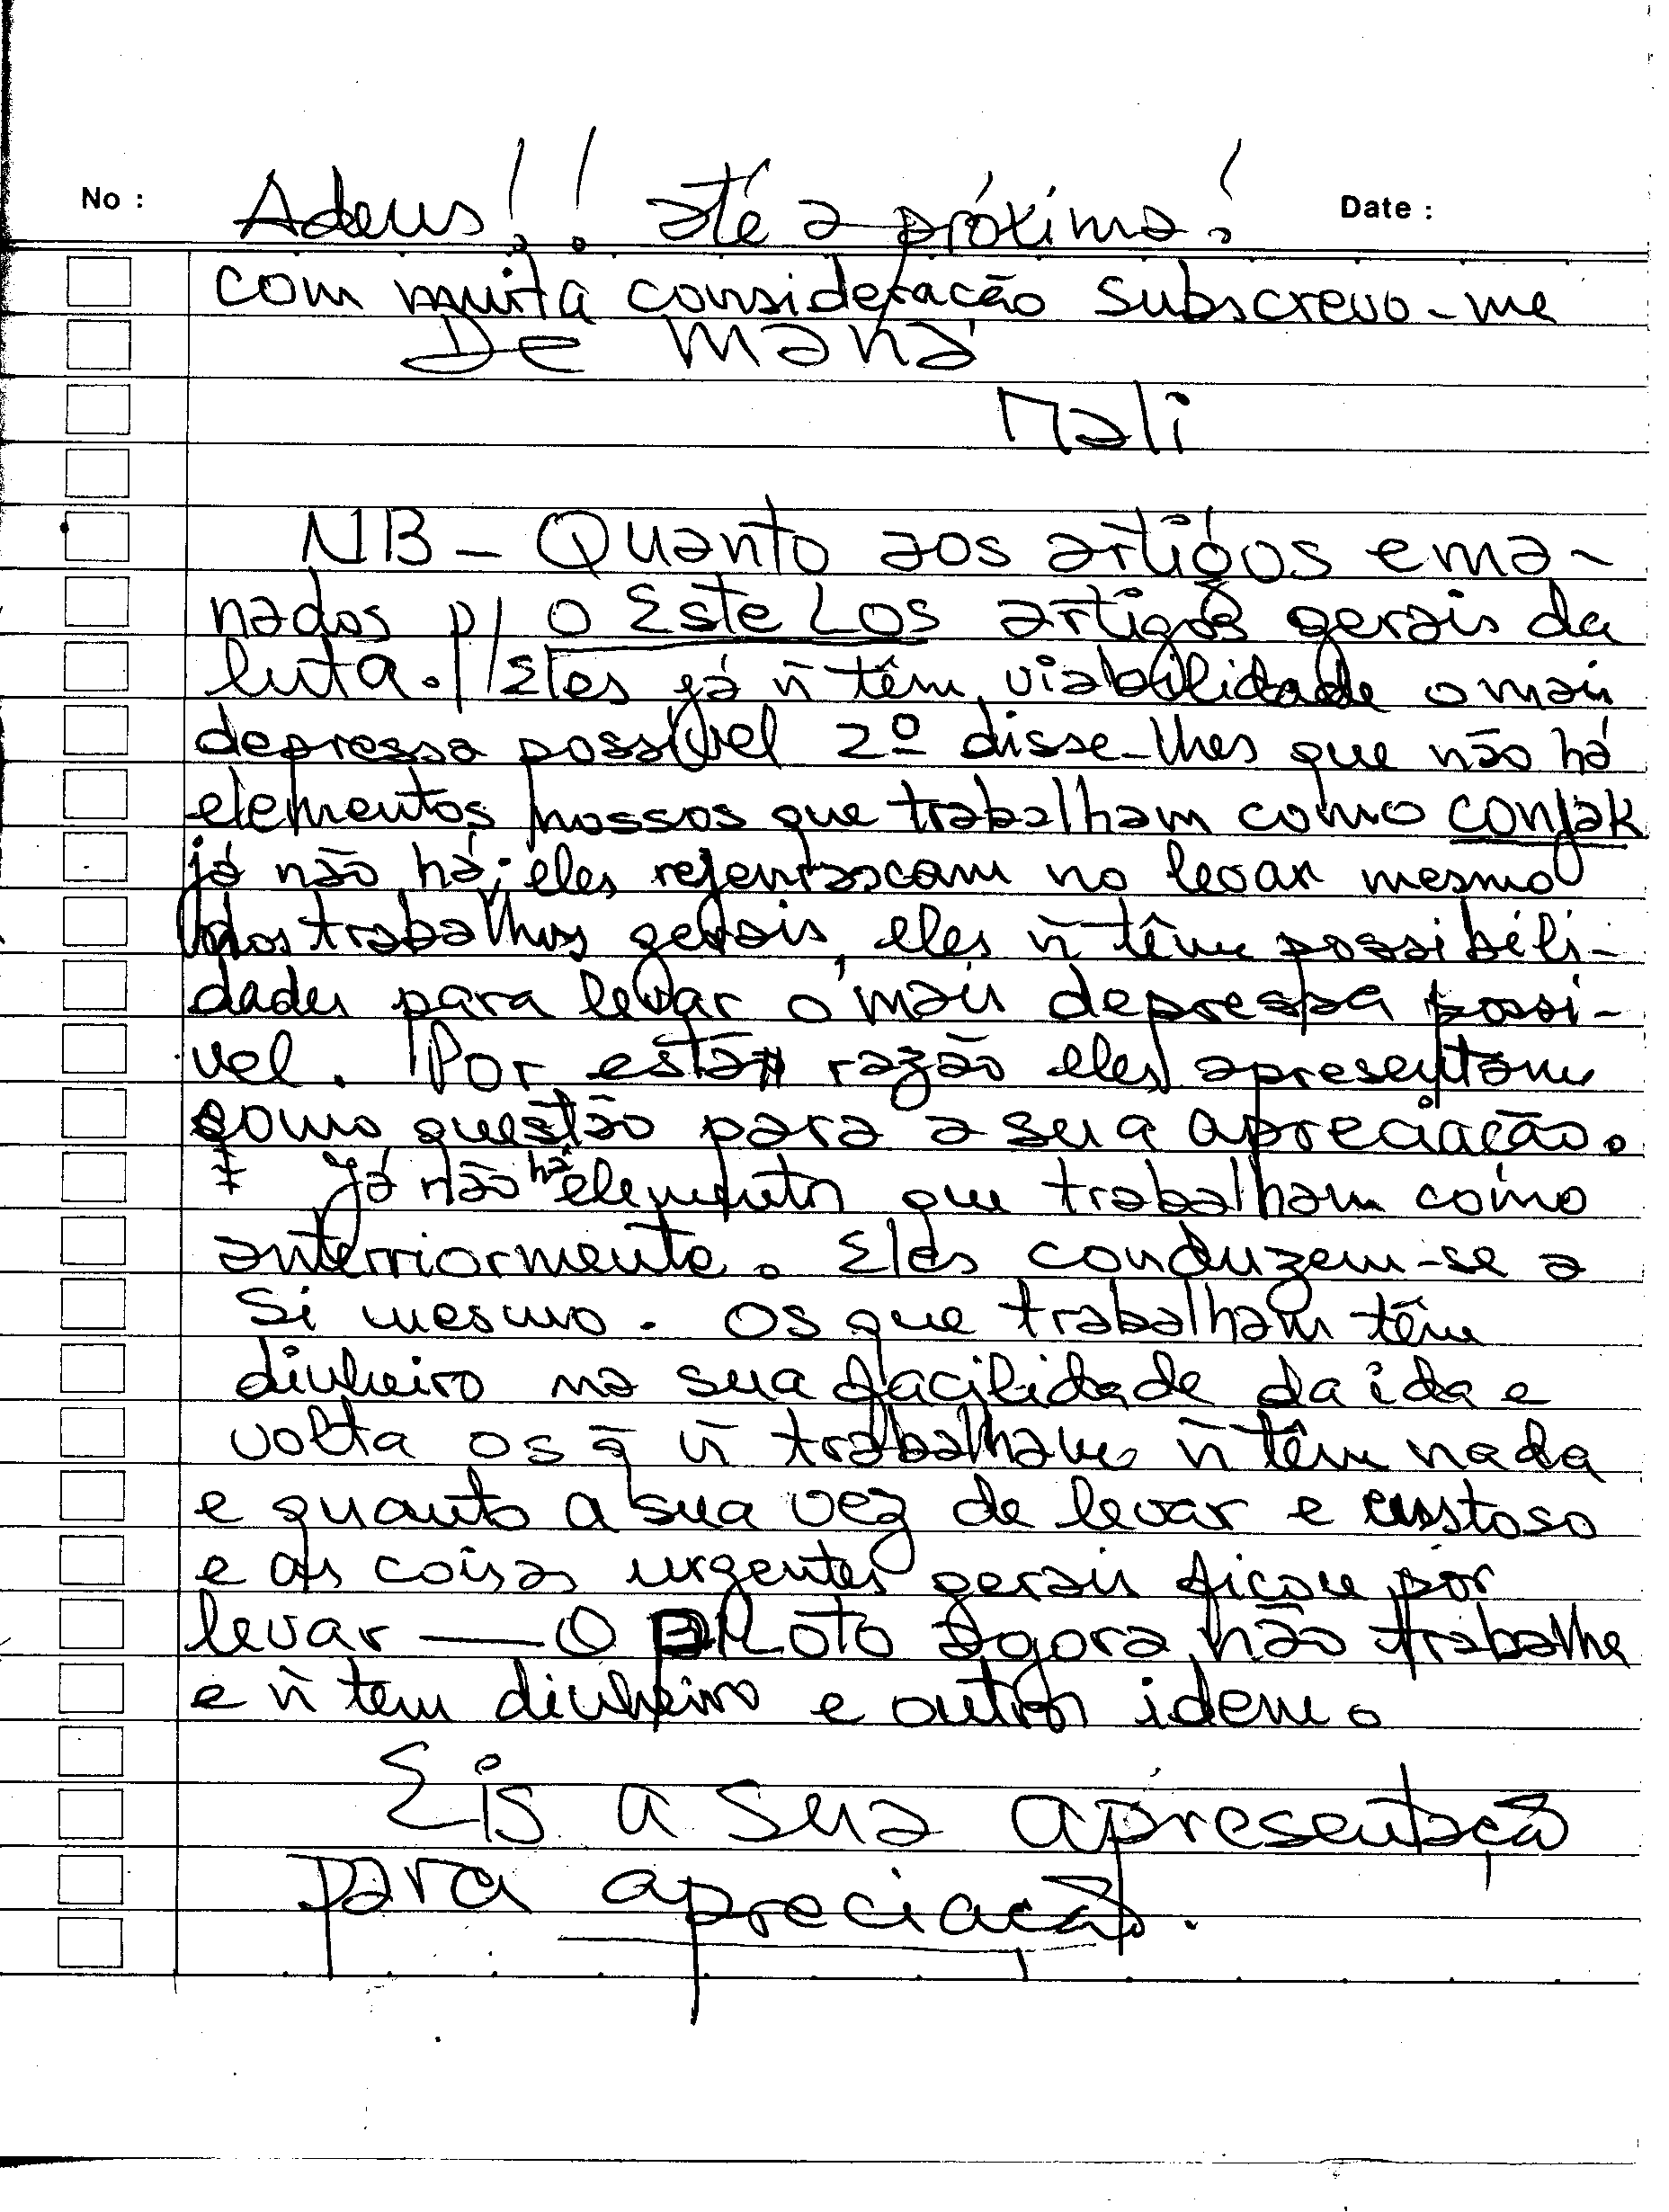 No :
Date :
Adeus!! até a próxima!
com muita consideração subscrevo-me
De maná
Mali
NB - Quanto aos artigos ema-
nados p/ o Este Los artigos gerais da
luta. Eles já ñ têm viabilidade o mais
depressa possível 2º disse-lhes que não há
elementos nossos que trabalham como conjak
já não há; eles no levar mesmo
dos trabalhos gerais eles ñ têm possibili-
dades para levar o mais depressa possi-
vel. Por esta razão eles apresentam
como questão para a sua apreciação.
Já não há elementos que trabalham como
anterriormente. Eles conduzem-se a
Si mesmo. Os que trabalham têm
dinheiro na sua facilidade da ida e
volta os q̃ ñ trabalham ñ têm nada
e quanto a sua vez de levar e custoso
e as coisas urgentes gerais ficam por
levar — O PILOTO agora não trabalha
e ñ tem dinheiro e outros idem.
Eis a sua apresentaçã
para apreciaçã.